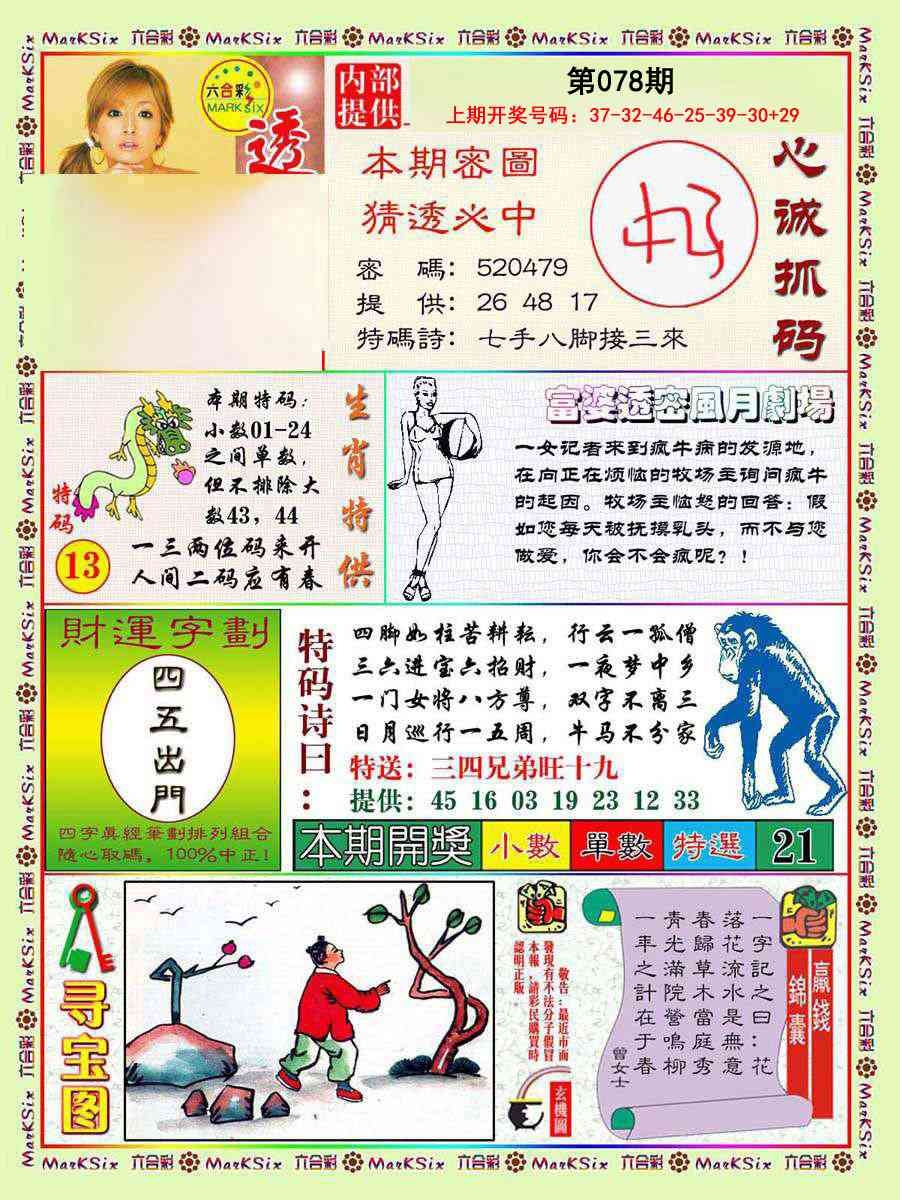 MarKSix 六合彩 MarKSix 六合彩 MarKSix 六合彩 MarKSix 六合彩 MarKSix 六合彩
六合彩
MARK SIX
透
内部
提供
第078期
上期开奖号码：37-32-46-25-39-30+29
本期密圖
猜透必中
密　碼：520479
提　供：26 48 17
特碼詩：七手八脚接三來
心诚抓码
本期特码：
小数01-24
之间单数，
但不排除大
数43，44
特码
13
一三两位码来开
人间二码应有春
生肖特供
富婆透密風月劇場
一女记者来到疯牛病的发源地，
在向正在烦恼的牧场主询问疯牛
的起因。牧场主恼怒的回答：假
如您每天被抚摸乳头，而不与您
做爱，你会不会疯呢？！
財運字劃
四五出門
四字眞經筆劃排列組合
隨心取碼，100%中正！
特码诗曰：
四脚如柱苦耕耘，行云一孤僧
三六进宝六招财，一夜梦中乡
一门女将八方尊，双字不离三
日月巡行一五周，牛马不分家
特送：三四兄弟旺十九
提供：45 16 03 19 23 12 33
本期開獎 小數 單數 特選 21
寻宝图
敬告：最近市面
發現有不法分子假冒
本報，請彩民購買時
認明正版。
玄機圖
一字記之曰：花
落花流水是無意
春歸草木當庭秀
青光滿院鶯鳴柳
一年之計在于春
曾女士
贏錢
錦囊
MarKSix 六合彩 MarKSix 六合彩 MarKSix 六合彩 MarKSix 六合彩 MarKSix 六合彩